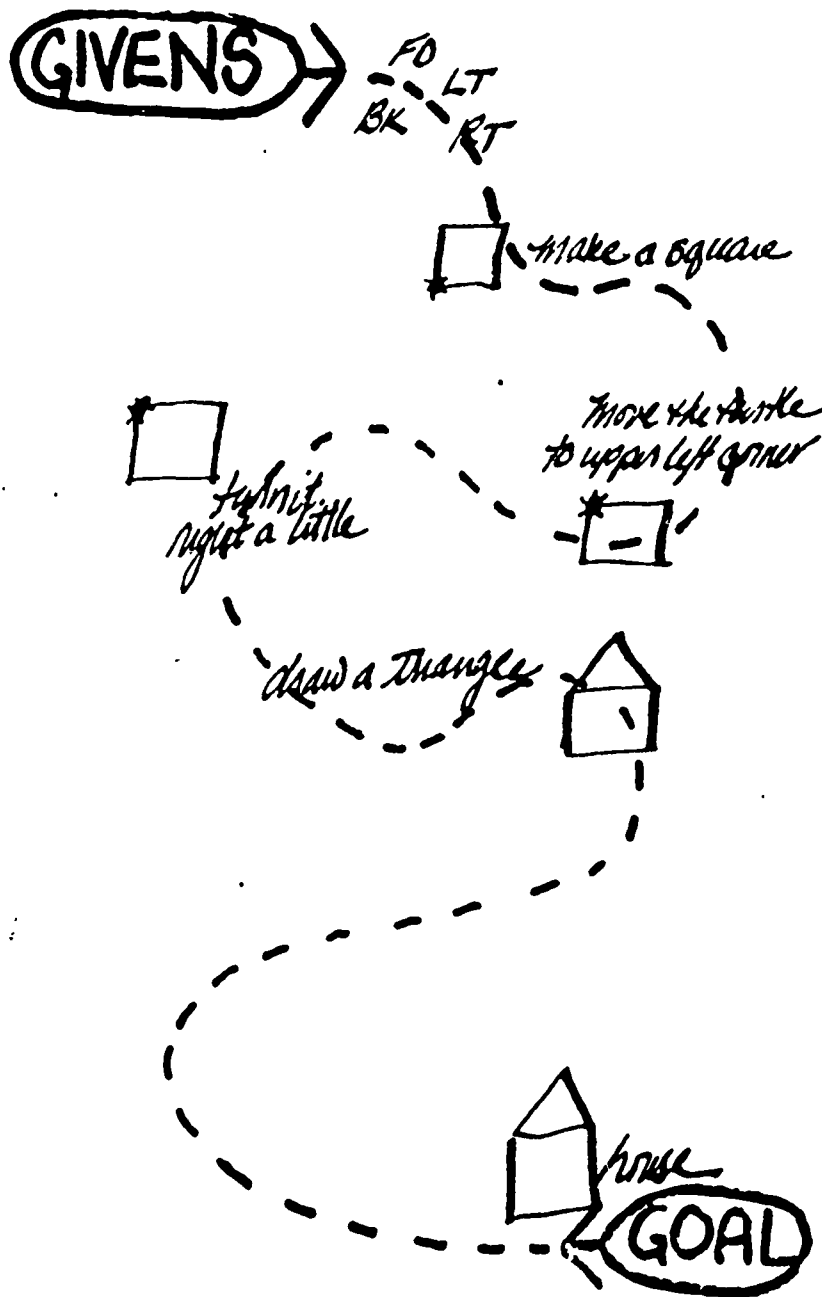 GIVENS
FD
LT
BK
RT
make a square
Move the turtle
to upper left corner
turn it
right a little
draw a triangle
house
GOAL